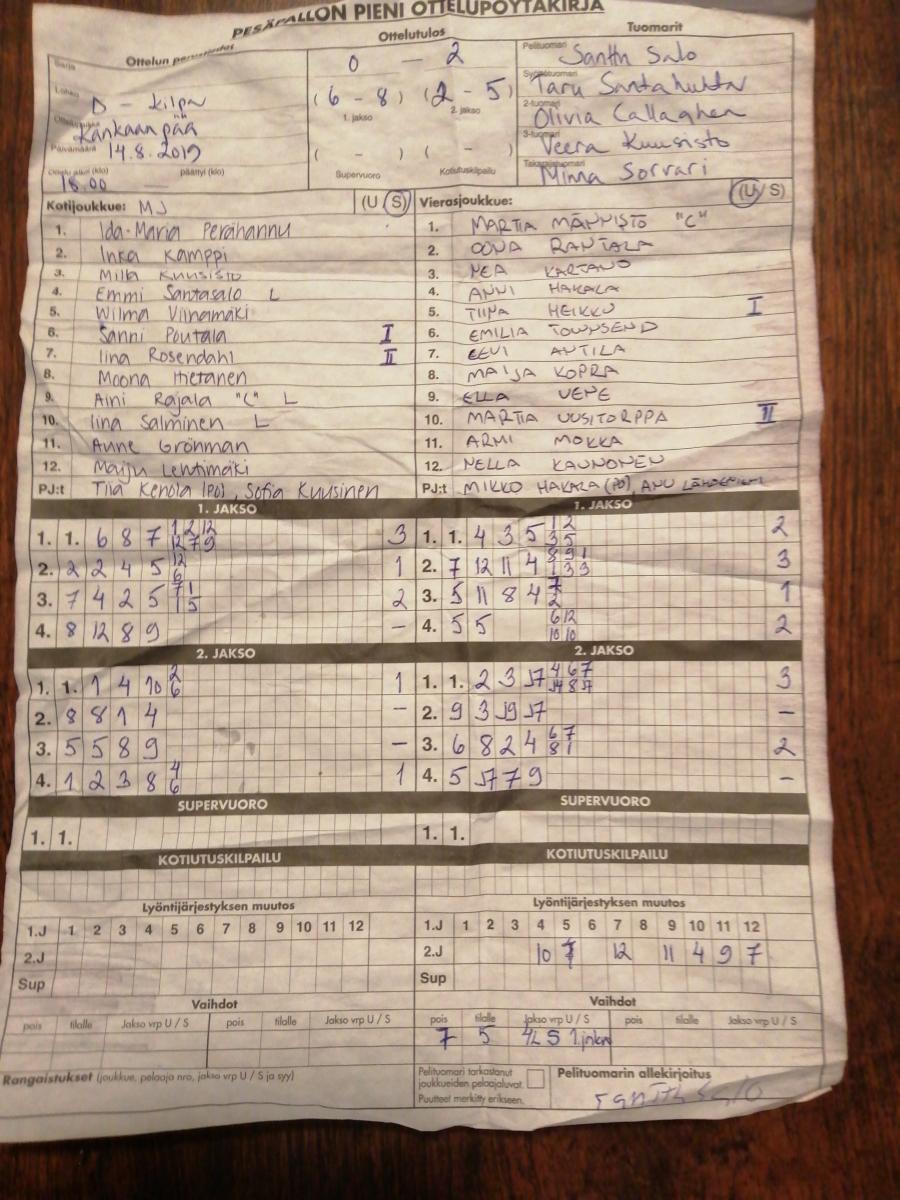 PESÄPALLON PIENI OTTELUPÖYTÄKIRJA
Ottelun perustiedot
Ottelutulos
Tuomarit
Sarja
0 — 2
Pelituomari Santtu Salo
Lohko D - kilpa
(6 - 8) (2 - 5)
Syöttötuomari Taru Santahuhta
1. jakso 2. jakso
2-tuomari Olivia Callaghen
Ottelupaikka Kankaanpää
3-tuomari Veera Kuusisto
Päivämäärä 14.8.2019
( - ) ( - )
Takarajatuomari Minna Sorvari
Ottelu alkoi (klo) 18.00 päättyi (klo)
Supervuoro Kotiutuskilpailu
Kotijoukkue: MJ (U/S)
Vierasjoukkue: (U/S)
1. Ida-Maria Perähannu
1. MARTTA MÄNNISTÖ "C"
2. Inka Kamppi
2. OONA RANTALA
3. Milla Kuusisto
3. NEA KARTANO
4. Emmi Santasalo L
4. ANNI HAKALA
5. Wilma Viinamäki
5. TIINA HEIKKU I
6. Sanni Poutala I
6. EMILIA TOWNSEND
7. Iina Rosendahl II
7. EEVI ANTILA
8. Moona Hietanen
8. MAIJA KOPRA
9. Aini Rajala "C" L
9. ELLA VENE
10. Iina Salminen L
10. MARTTA UUSITORPPA II
11. Anne Grönman
11. ARMI MOKKA
12. Maiju Lehtimäki
12. NELLA KAUNONEN
PJ:t Tiia Kenola (PJ), Sofia Kuusinen
PJ:t MIKKO HAKALA (PJ), ANU
1. JAKSO
1. JAKSO
1. 1. 6 8 7 1 2 12 3
12 7 9
1. 1. 4 3 5 1 2 2
3 5
2. 2 2 4 5 12 1
6
2. 7 12 11 4 8 9 1 3
1 3 3
3. 7 4 2 5 7 1 2
1 5
3. 5 11 8 4 7 1
2
4. 8 12 8 9 –
4. 5 5 6 12 2
10 10
2. JAKSO
2. JAKSO
1. 1. 1 4 10 2 1
6
1. 1. 2 3 J7 4 6 7 3
J4 8 J7
2. 8 8 1 4 –
2. 9 3 J9 J7 –
3. 5 5 8 9 –
3. 6 8 2 4 6 7 2
8 1
4. 1 2 3 8 4 1
6
4. 5 J7 7 9 –
SUPERVUORO
SUPERVUORO
1. 1.
1. 1.
KOTIUTUSKILPAILU
KOTIUTUSKILPAILU
Lyöntijärjestyksen muutos
Lyöntijärjestyksen muutos
1.J 1 2 3 4 5 6 7 8 9 10 11 12
1.J 1 2 3 4 5 6 7 8 9 10 11 12
2.J
2.J 10 12 11 4 9 7
Sup
Sup
Vaihdot
Vaihdot
pois tilalle Jakso vrp U / S pois tilalle Jakso vrp U / S
pois tilalle Jakso vrp U / S pois tilalle Jakso vrp U / S
7 5 4L S 1.jakso
Rangaistukset (joukkue, pelaaja nro, jakso vrp U / S ja syy)
Pelituomari tarkastanut joukkueiden pelaajaluvat.
Puutteet merkitty erikseen.
Pelituomarin allekirjoitus
Santtu Salo